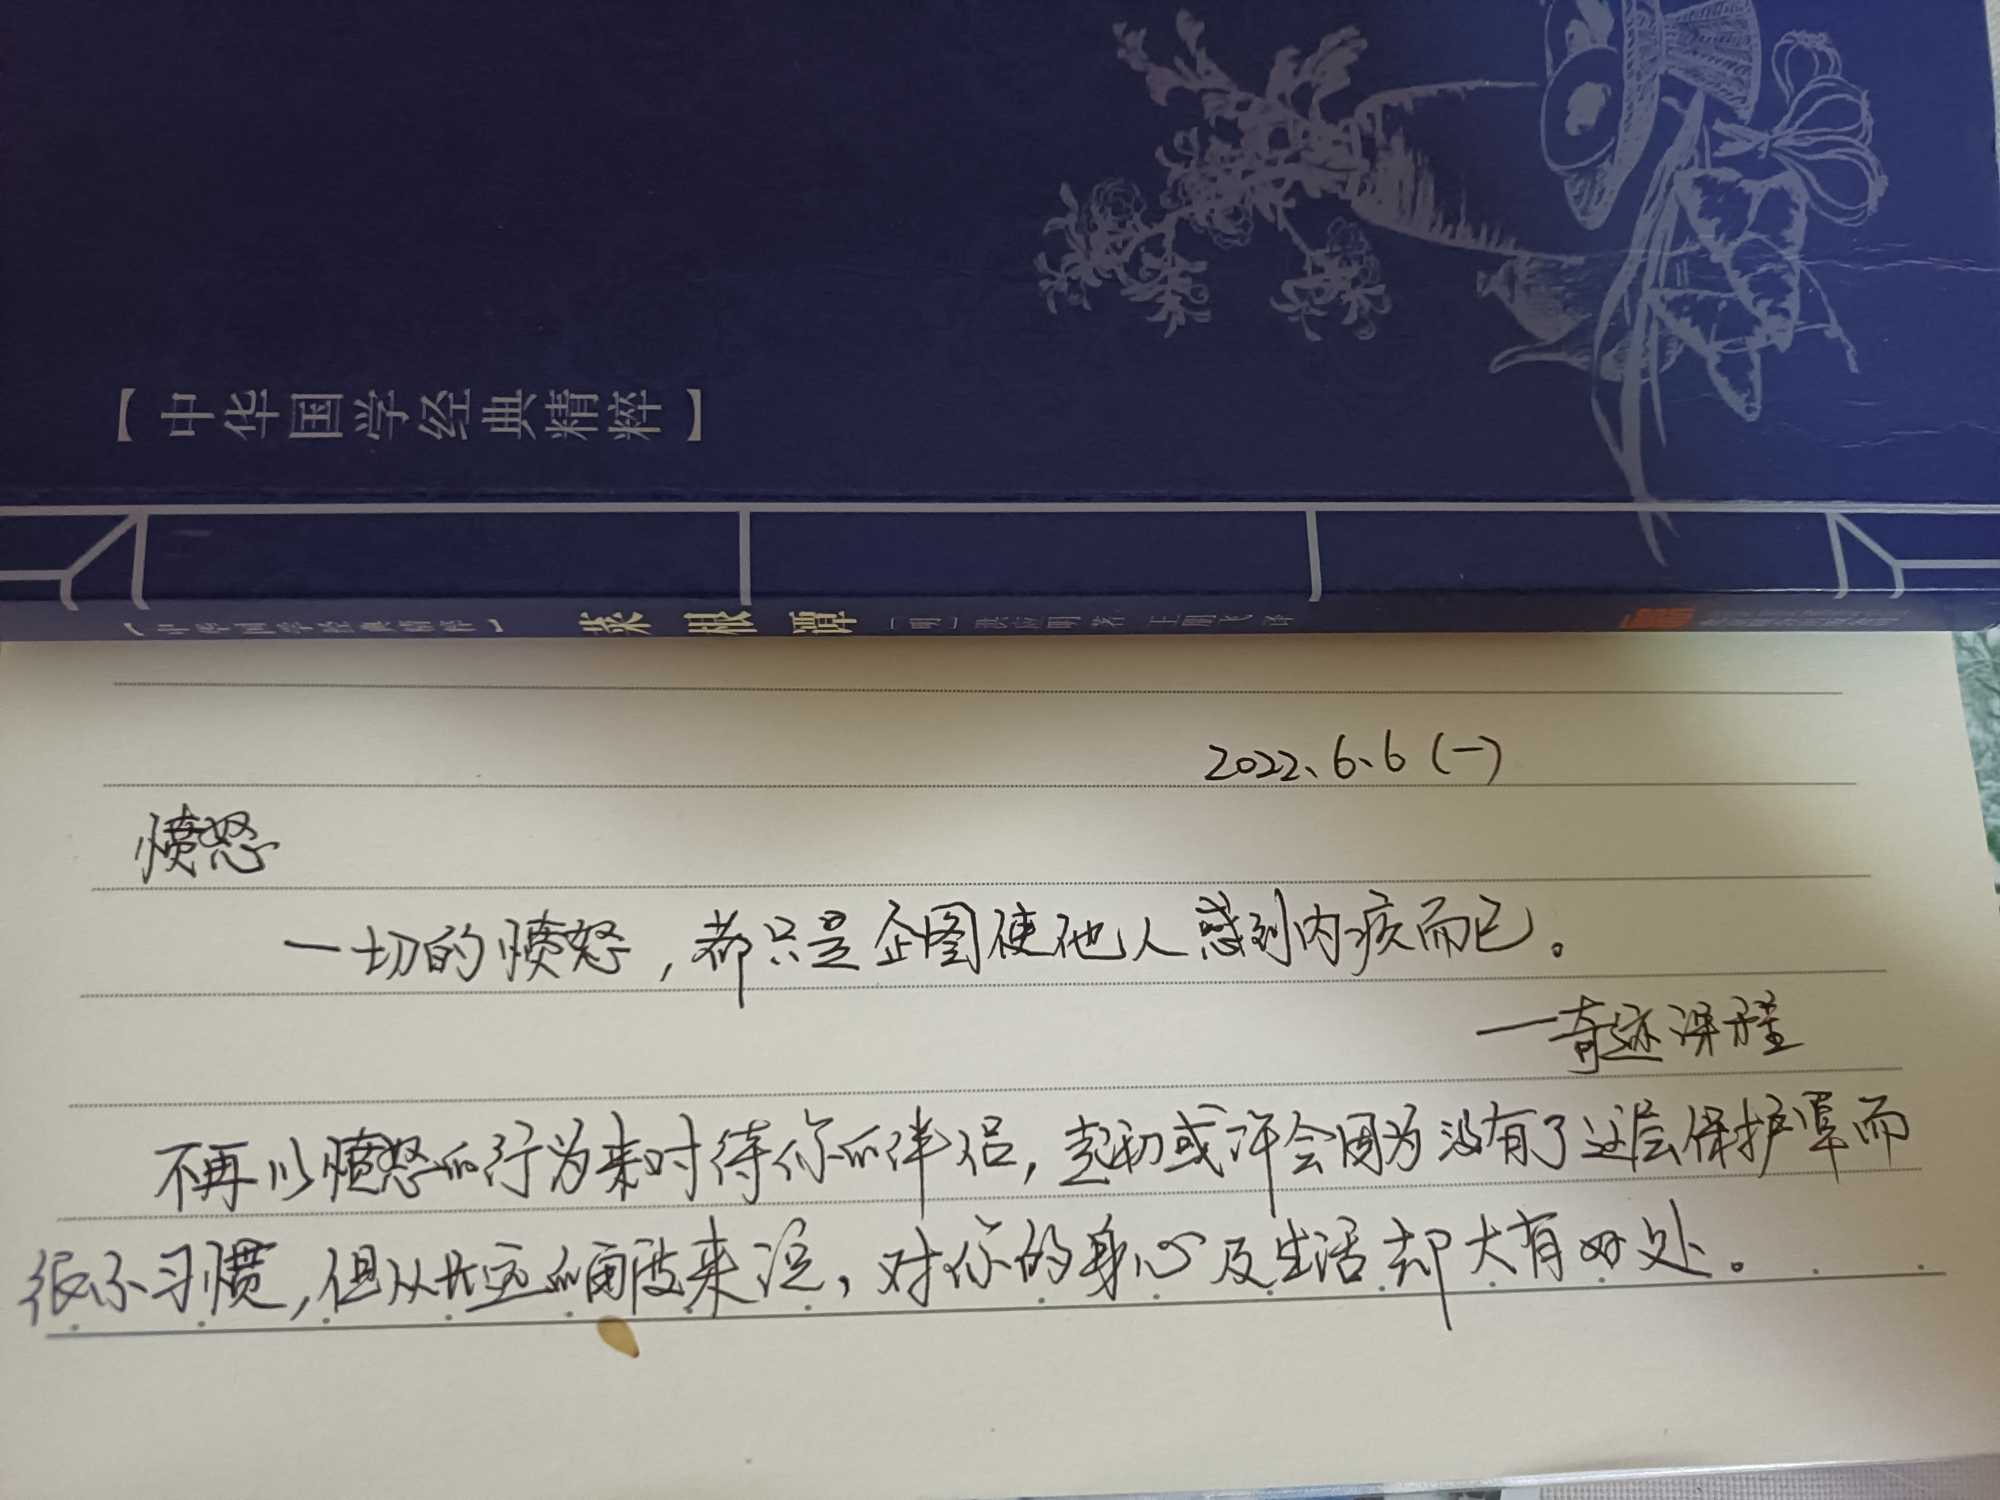 【中华国学经典精粹】
【中华国学经典精粹】 菜根谭 [明] 洪应明 著 王鹏飞 译
2022.6.6(一)
愤怒
一切的愤怒,都只是企图使他人感到内疚而已。
——奇迹课程
不再以愤怒的行为来对待你的伴侣,起初或许会因为没有了这层保护罩而
很不习惯,但从长远的角度来说,对你的身心及生活却大有好处。